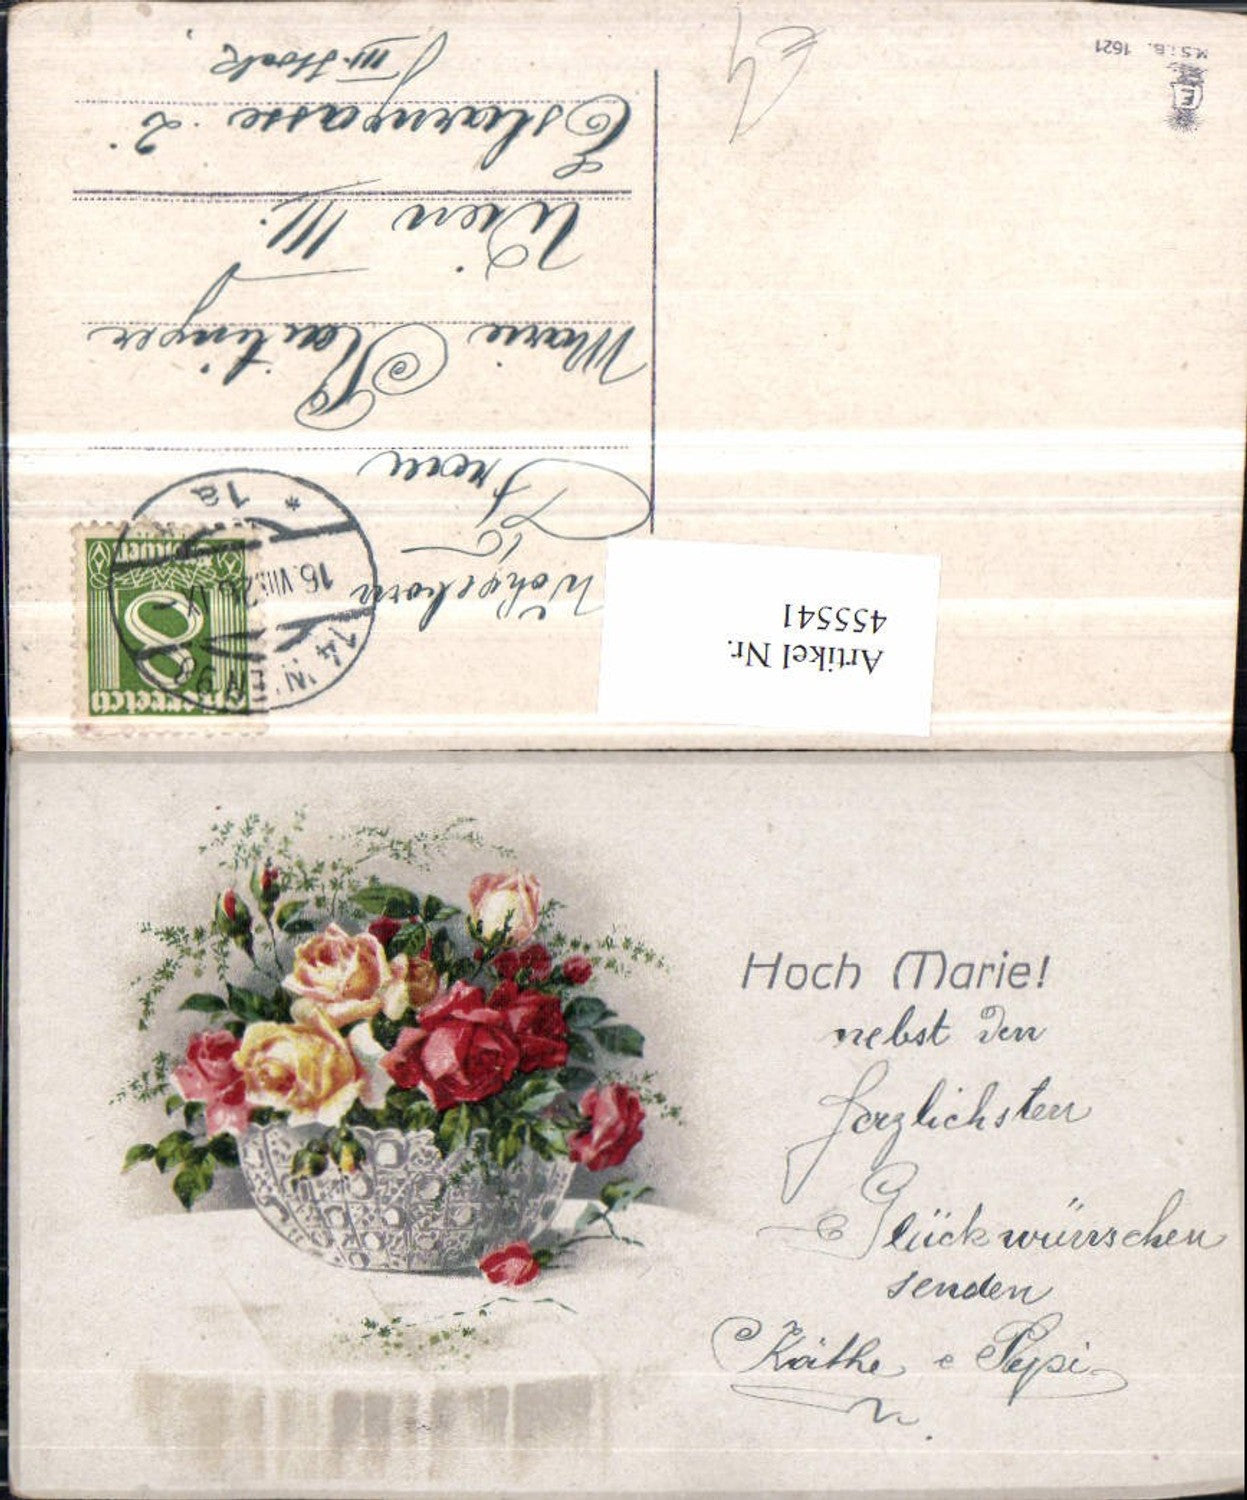 M.S.i.B. 1621
Wien
1a
*
16. VIII. 26
8
Österreich
Artikel Nr.
455541
Wohlgeborn
Frau
Marie
Wien III.
2
III. Stock
Hoch Marie!
nebst den
herzlichsten
Glückwünschen
senden
Käthe e Pepi